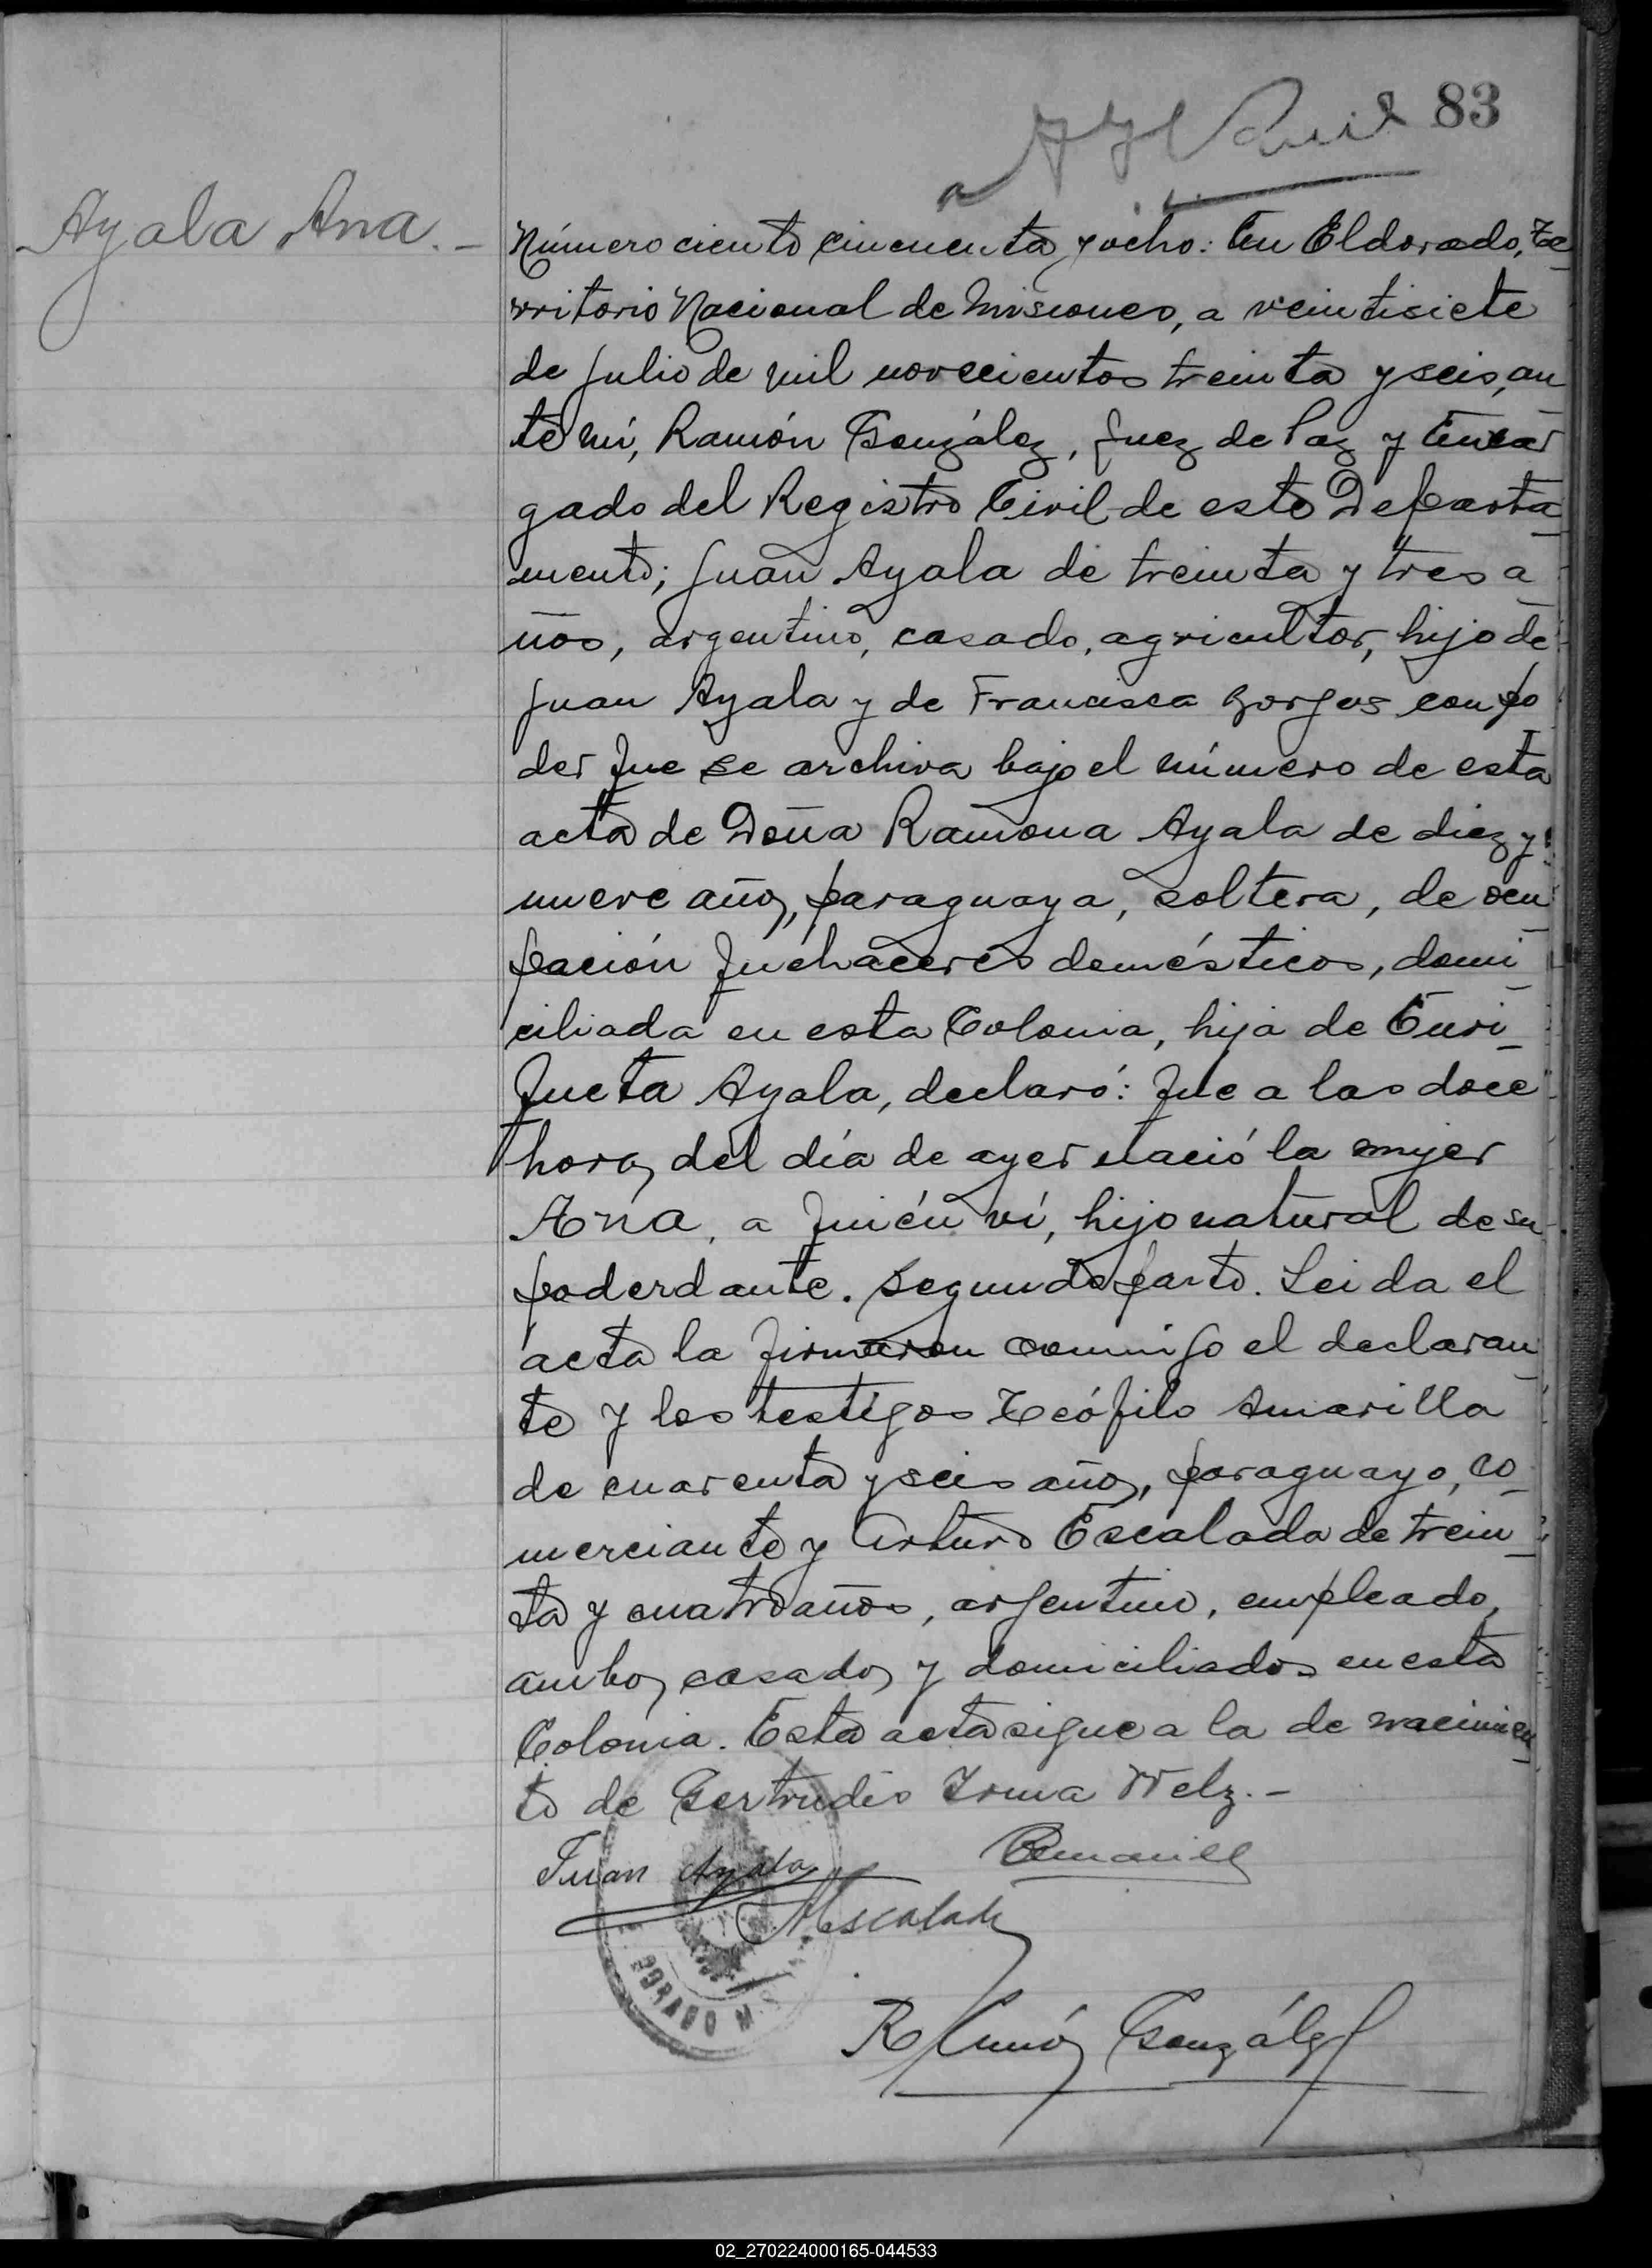 83
Ayala Ana.-
Número ciento cincuenta y ocho: En Eldorado, Te-
rritorio Nacional de Misiones, a veintisiete
de julio de mil novecientos treinta y seis, an
te mí, Ramón González, Juez de Paz y Encar
gado del Registro Civil de este Departa-
mento; Juan Ayala de treinta y tres a-
ños, argentino, casado, agricultor, hijo de
Juan Ayala y de Francisca con po
der que se archiva bajo el número de esta
acta de Doña Ramona Ayala de diez y
nueve años, paraguaya, soltera, de ocu-
pación quehaceres domésticos, domi-
ciliada en esta Colonia, hija de Enri-
queta Ayala, declaró: que a las doce
horas del día de ayer nació la mujer
Ana, a quién ví, hijo natural de su
poderdante. Segundo parto. Leida el
acta la firmaron conmigo el declaran-
te y los testigos Teófilo Amarilla
de cuarenta y seis años, paraguayo, co-
merciante y Arturo Escalada de trein-
ta y cuatro años, argentino, empleado,
ambos casados y domiciliados en esta
Colonia. Esta acta sigue a la de nacimien-
to de Gertrudis Irma Welz.-
Juan Ayala
AEscalada
DORADO M
Ramón González
02_270224000165-044533